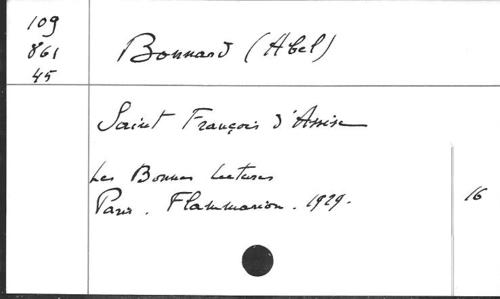 109
861
45
Bonnard (Abel)
Saint François d'Assise
Les Bonnes Lectures
Paris. Flammarion. 1929.
16